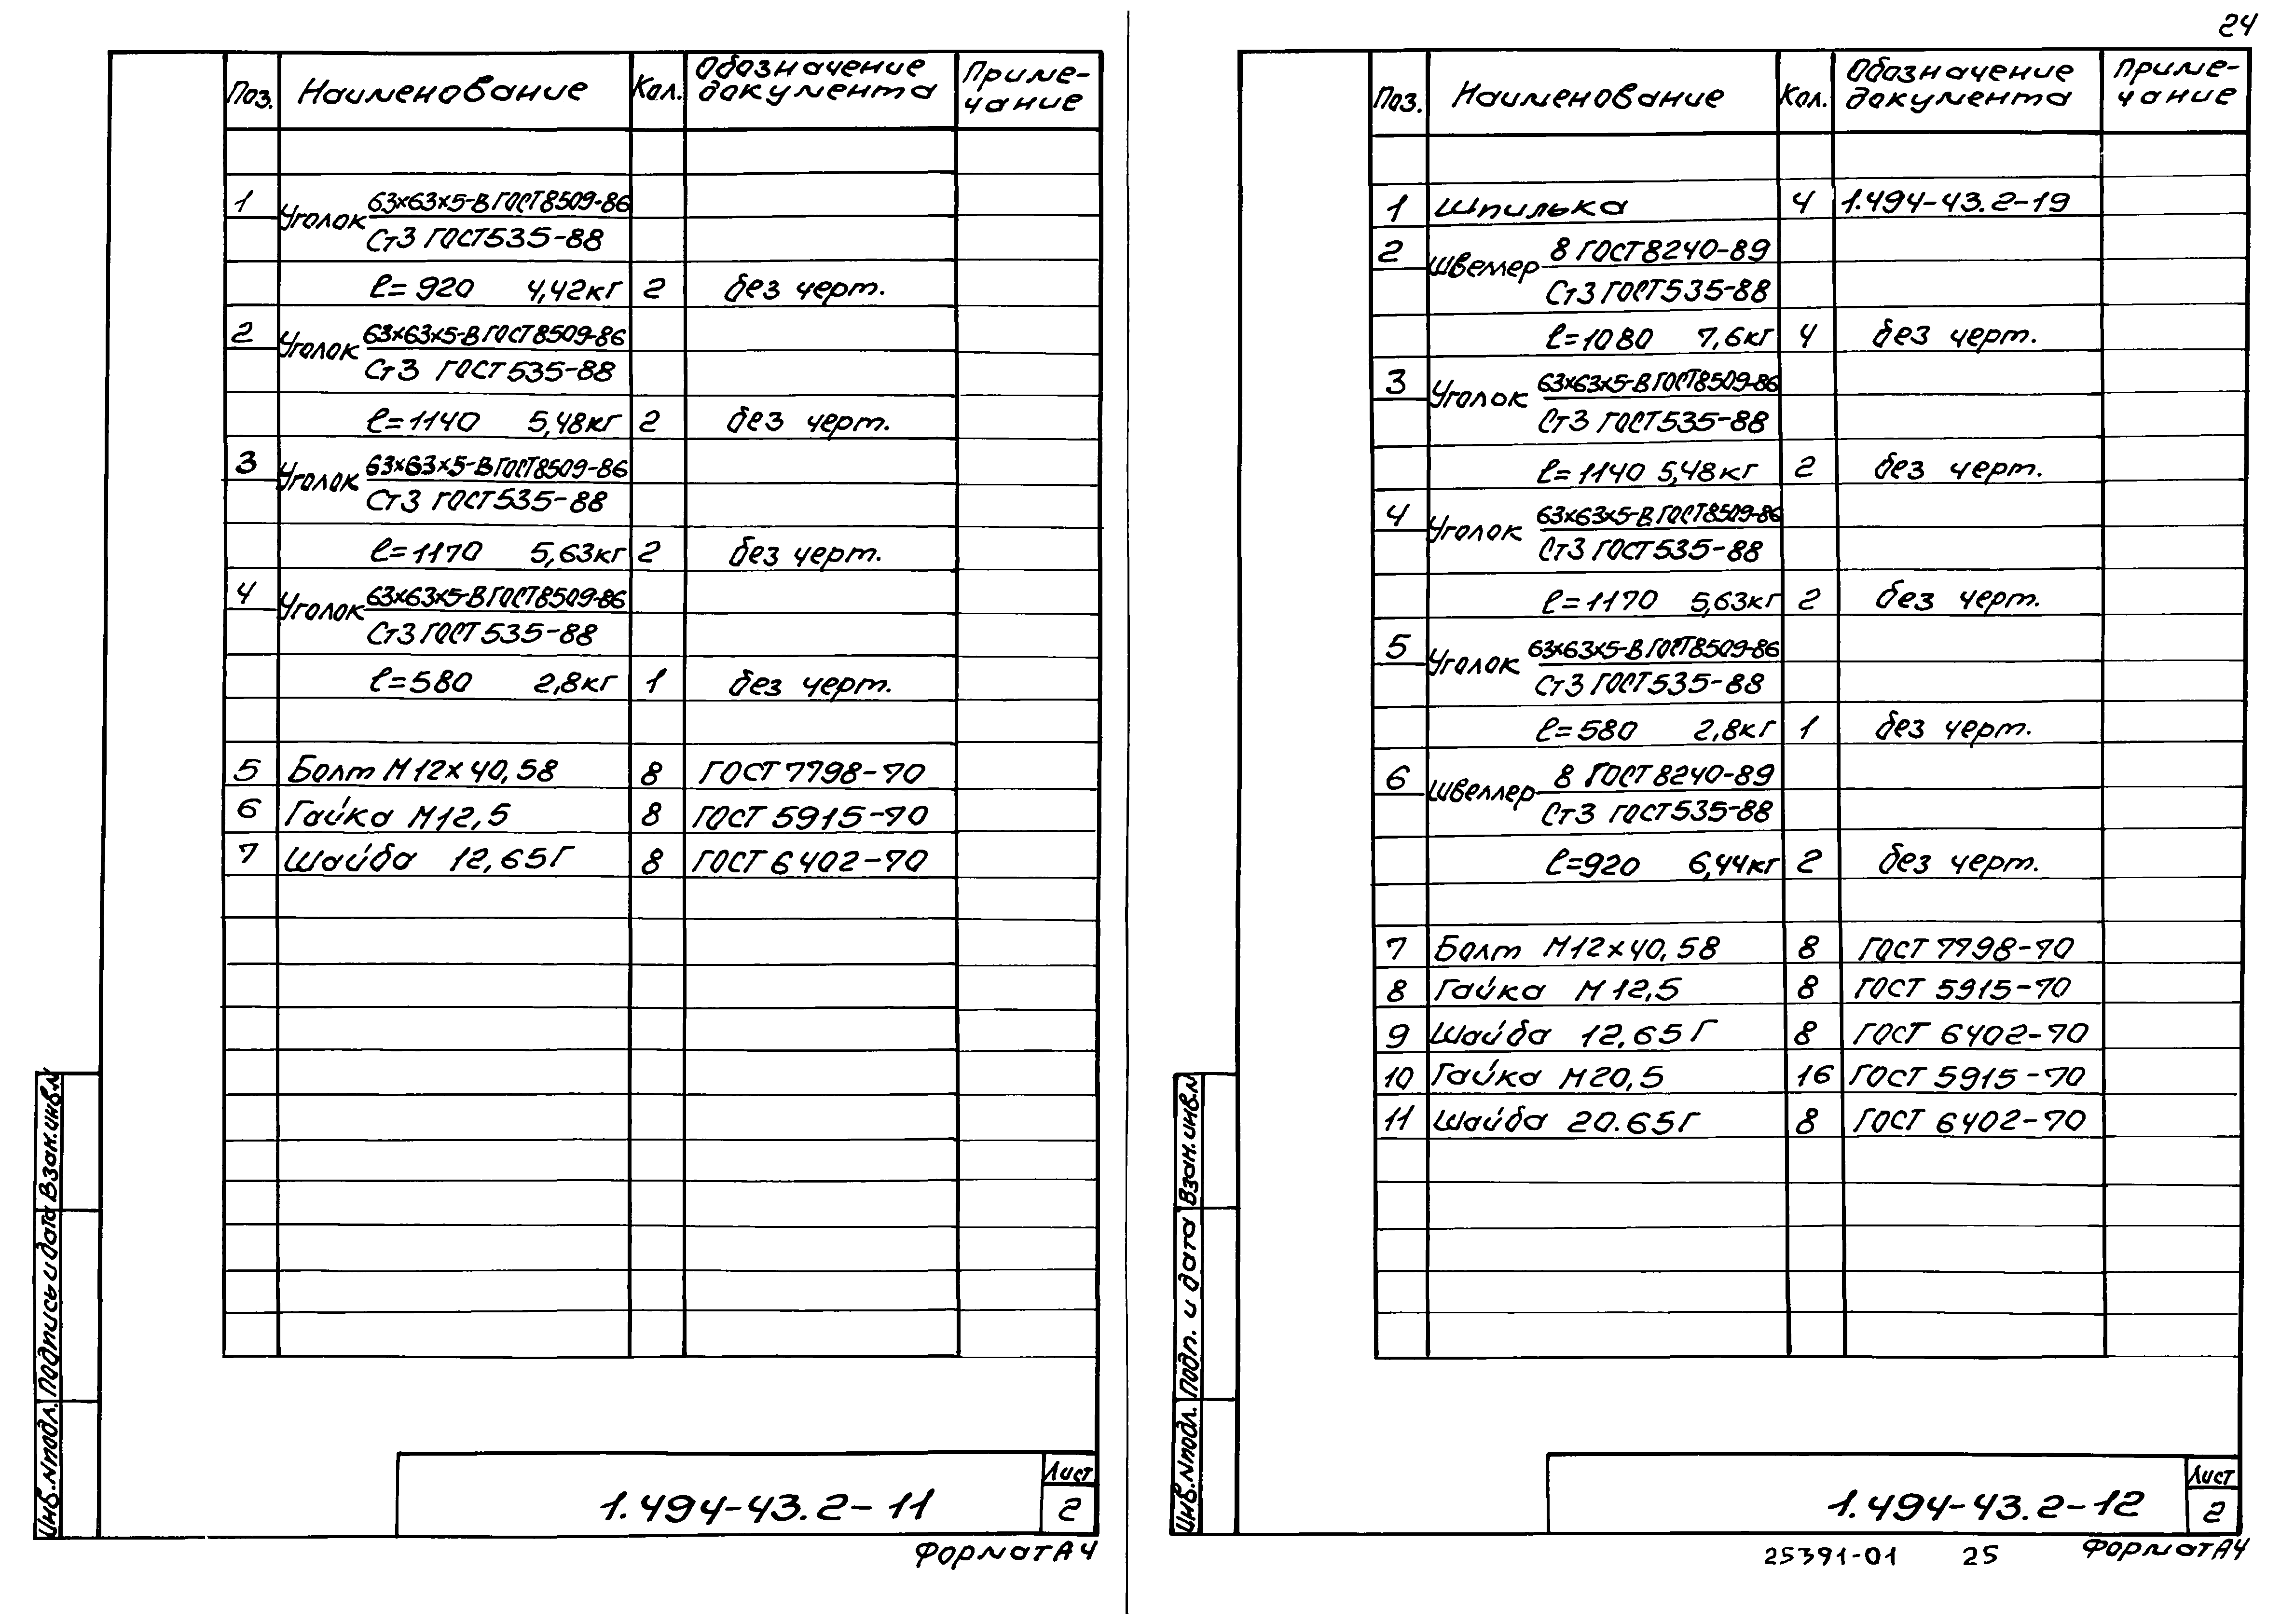 24
Поз. Наименование Кол. Обозначение документа Приме-чание
1 Уголок 63х63х5-В ГОСТ 8509-86
Ст3 ГОСТ 535-88
ℓ=920 4,42кг 2 без черт.
2 Уголок 63х63х5-В ГОСТ 8509-86
Ст3 ГОСТ 535-88
ℓ=1140 5,48кг 2 без черт.
3 Уголок 63х63х5-В ГОСТ 8509-86
Ст3 ГОСТ 535-88
ℓ=1170 5,63кг 2 без черт.
4 Уголок 63х63х5-В ГОСТ 8509-86
Ст3 ГОСТ 535-88
ℓ=580 2,8кг 1 без черт.
5 Болт М12х40,58 8 ГОСТ 7798-70
6 Гайка М12,5 8 ГОСТ 5915-70
7 Шайба 12,65Г 8 ГОСТ 6402-70
Инв.№подл. Подпись и дата Взам.инв.№
1.494-43.2-11
Лист
2
Формат А4
Поз. Наименование Кол. Обозначение документа Приме-чание
1 Шпилька 4 1.494-43.2-19
2 Швеллер 8 ГОСТ 8240-89
Ст3 ГОСТ 535-88
ℓ=1080 7,6кг 4 без черт.
3 Уголок 63х63х5-В ГОСТ 8509-86
Ст3 ГОСТ 535-88
ℓ=1140 5,48кг 2 без черт.
4 Уголок 63х63х5-В ГОСТ 8509-86
Ст3 ГОСТ 535-88
ℓ=1170 5,63кг 2 без черт.
5 Уголок 63х63х5-В ГОСТ 8509-86
Ст3 ГОСТ 535-88
ℓ=580 2,8кг 1 без черт.
6 Швеллер 8 ГОСТ 8240-89
Ст3 ГОСТ 535-88
ℓ=920 6,44кг 2 без черт.
7 Болт М12х40,58 8 ГОСТ 7798-70
8 Гайка М12,5 8 ГОСТ 5915-70
9 Шайба 12,65Г 8 ГОСТ 6402-70
10 Гайка М20,5 16 ГОСТ 5915-70
11 Шайба 20.65Г 8 ГОСТ 6402-70
Инв.№подл. Подп. и дата Взам.инв.№
1.494-43.2-12
Лист
2
25391-01 25 Формат А4